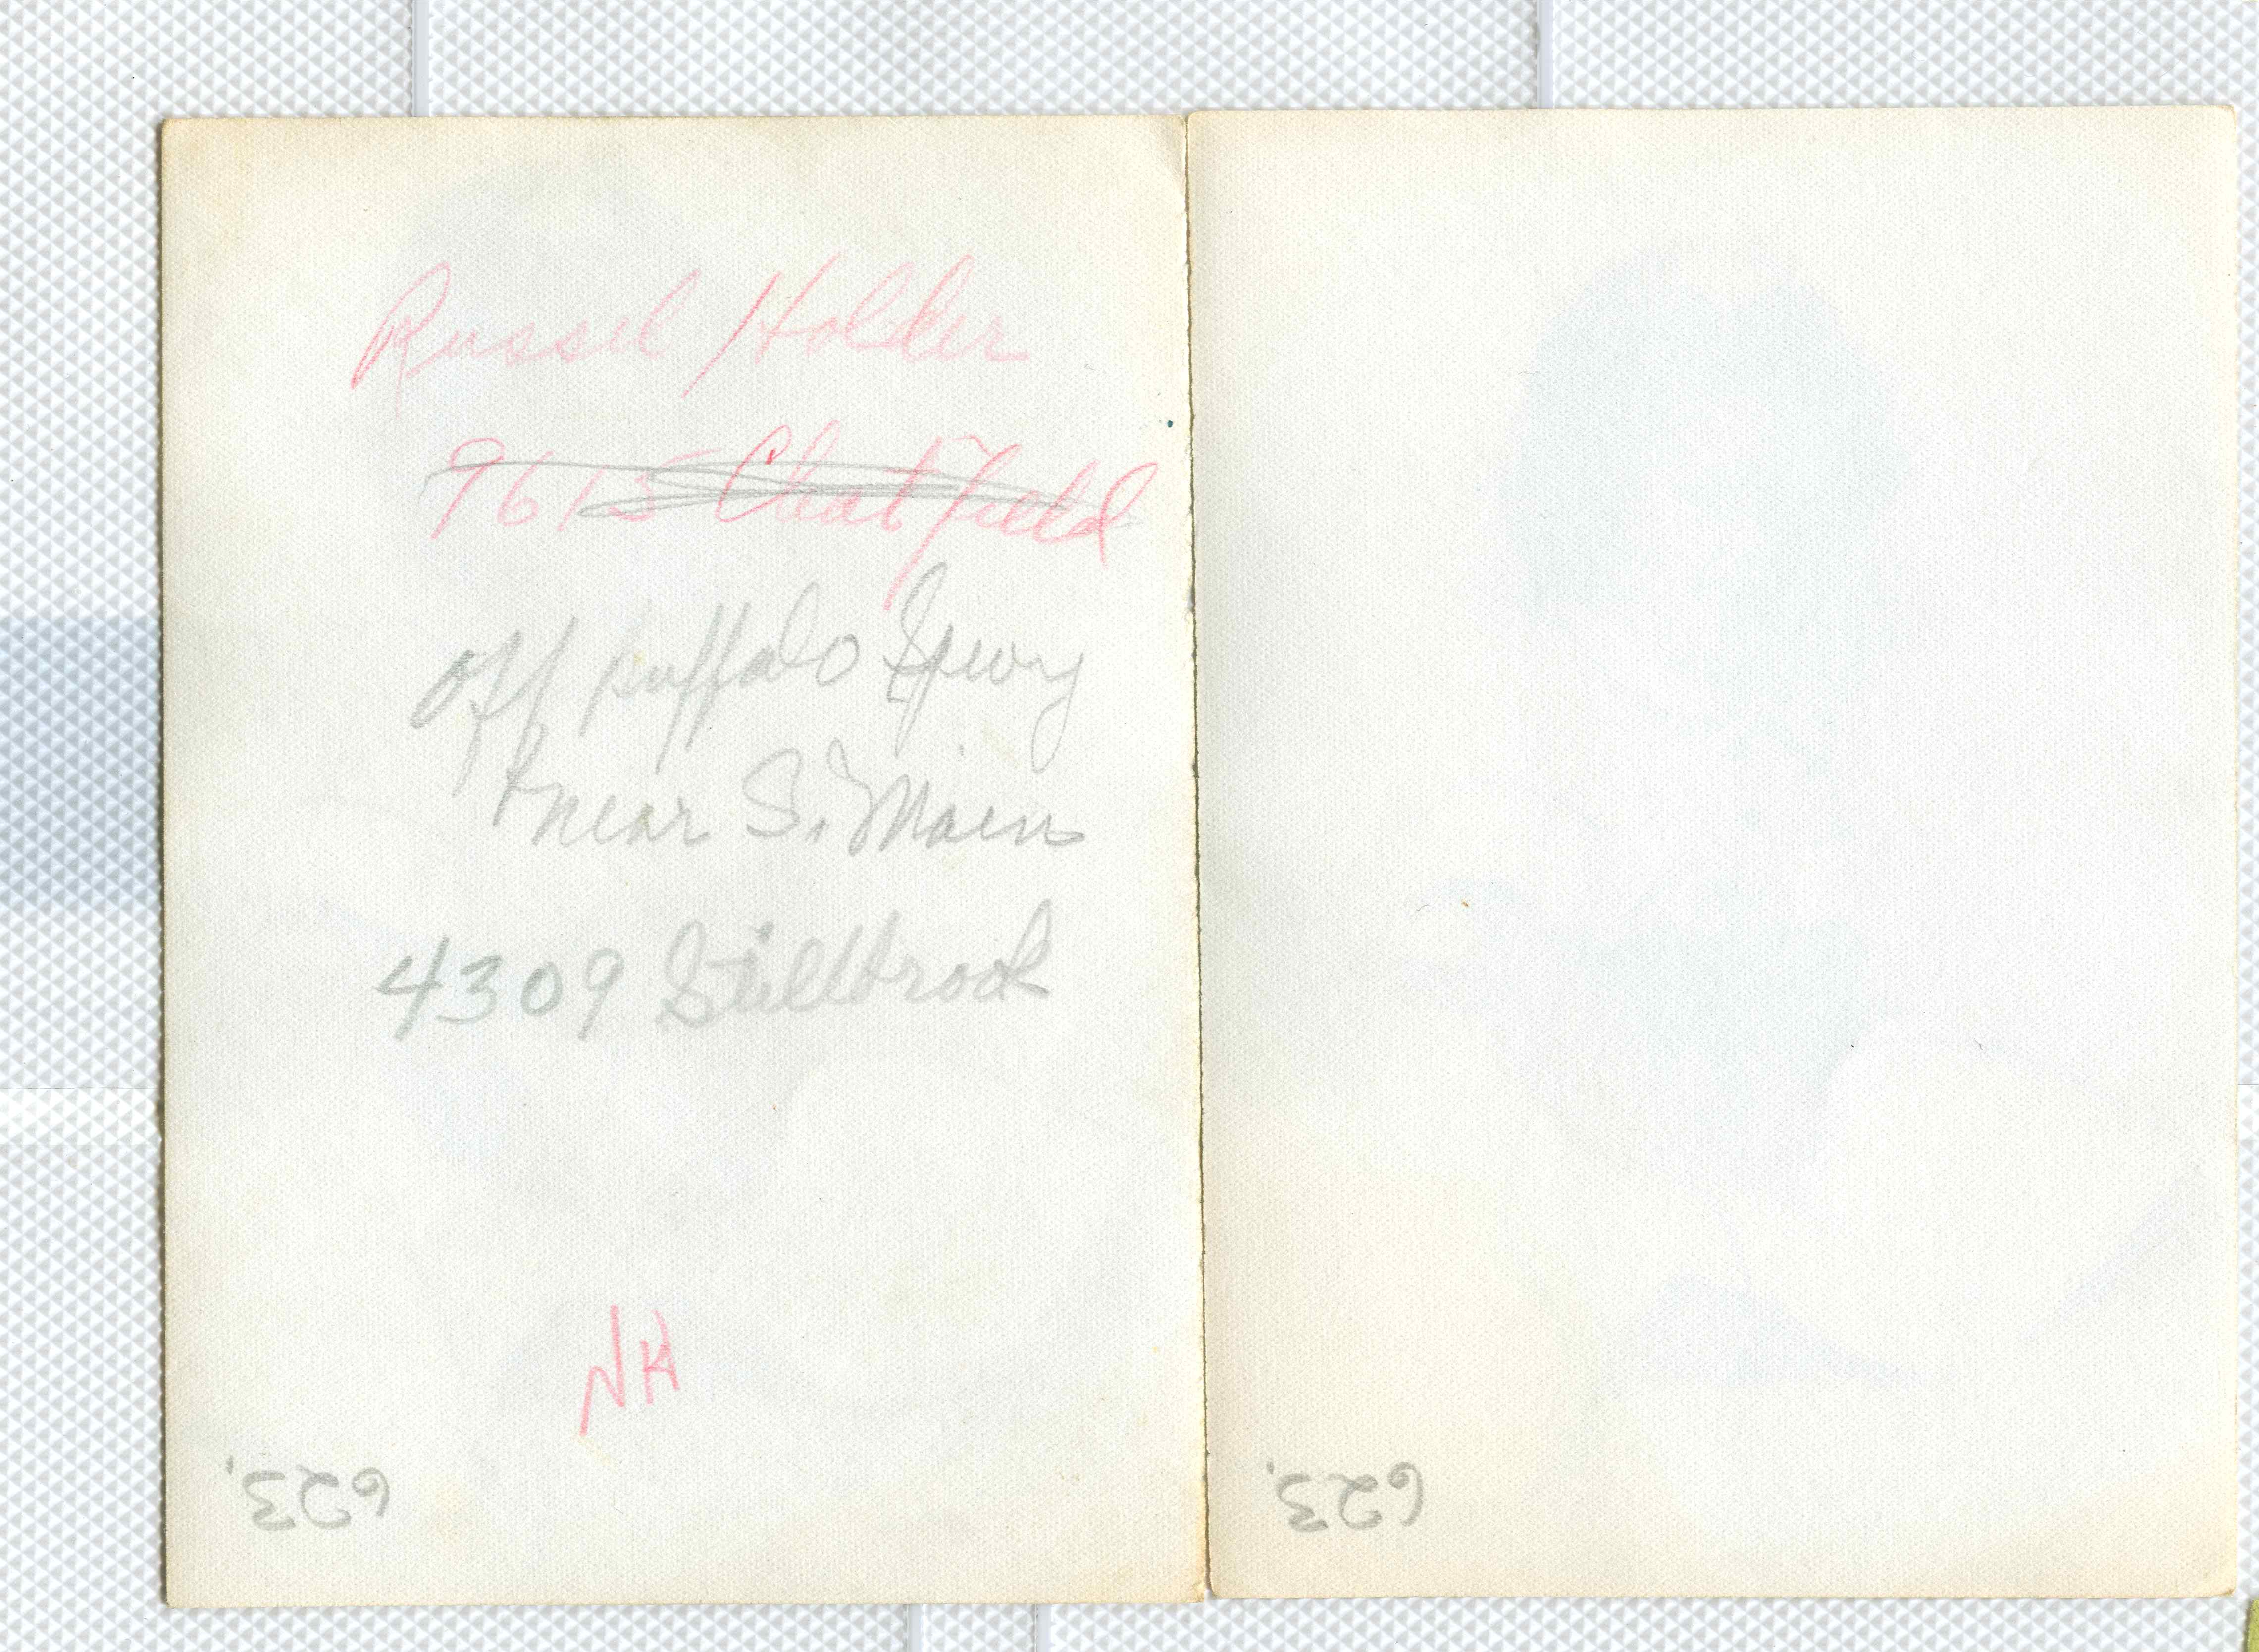 Russel Holder
9615 Chatfield
off Buffalo Spwy
near S. Main
4309 Stillbrook
NH
623.
623.